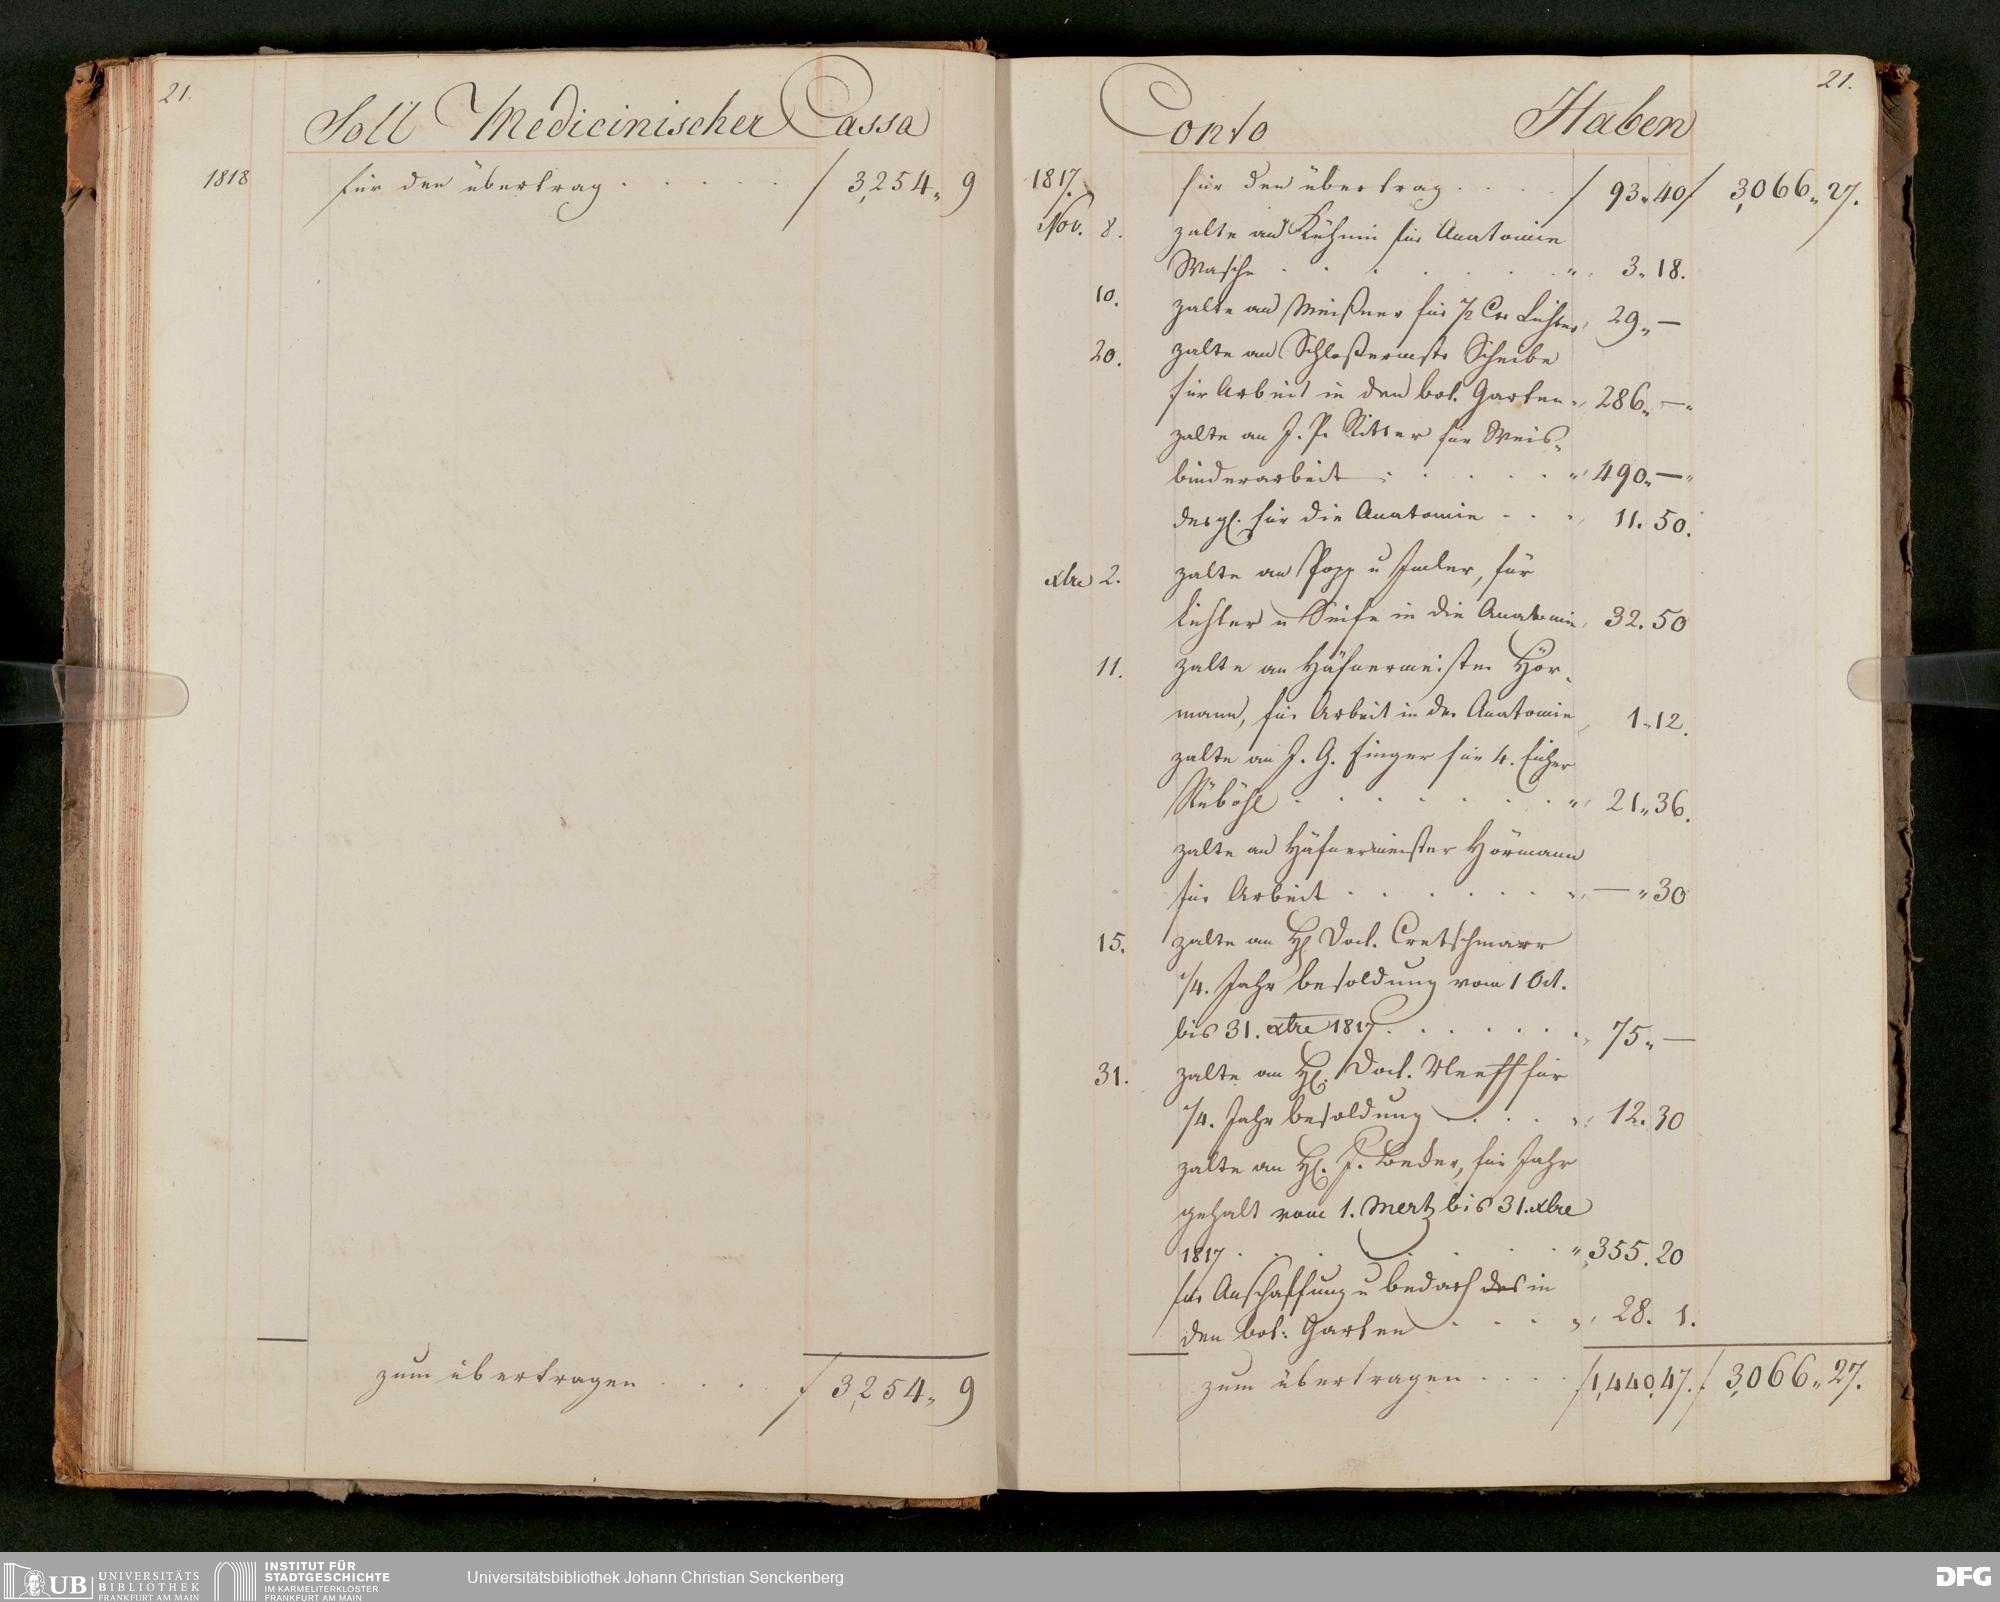 21.
Soll Medicinischer Cassa
1818 für den übertrag . . . . . f 3,254 „ 9
zum übertragen . . . f 3,254 „ 9
21.
Conto Haben
1817. für den übertrag . . . . f 93 „ 40 f 3,066 „ 27.
Nov. 8. zalte an Kühnin für Anatomie
Wasche . . . . . . . „ 3 „ 18.
10. zalte an Meißner für ½ Ctr Lichter „ 29 „ —
20. zalte an Schloßermstr Scheibe
für Arbeit in den bot. Garten „ 286 „ — „
zalte an J. P. Ritter für Weis-
binderarbeit . . . . . „ 490 „ — „
desgl. für die Anatomie . . . „ 11. 50.
xbre 2. zalte an Popp u , für
Lichter u Seife in die Anatomie „ 32. 50
11. zalte an Häfnermeister Hör-
mann, für Arbeit in der Anatomie „ 1 „ 12.
zalte an J. G. Finger für 4. Eicher
Rüböhl . . . . . . . „ 21 „ 36.
zalte an Häfnermeister Hörmann
für Arbeit . . . . . . „ — „ 30
15. zalte an H. Doct. Cretschmarr
1/4. Jahr besoldung vom 1 Oct.
bis 31. xbre 1817. . . . . . „ 75 „ —
31. zalte an H. Doct. Neeff für
1/4. Jahr besoldung . . . „ 12. 30
zalte an H. J. Bæder, für Jahr
gehalt vom 1. Mertz bis 31. xbre
1817 . . . . . . . „ 355. 20
für Anschaffung u bedarf des in
den bot: Garten . . . . „ 28. 1.
zum übertragen . . . . f 1,440. 47. f 3,066 „ 27.
UB UNIVERSITÄTS
BIBLIOTHEK
FRANKFURT AM MAIN
INSTITUT FÜR
STADTGESCHICHTE
IM KARMELITERKLOSTER
FRANKFURT AM MAIN
Universitätsbibliothek Johann Christian Senckenberg
DFG